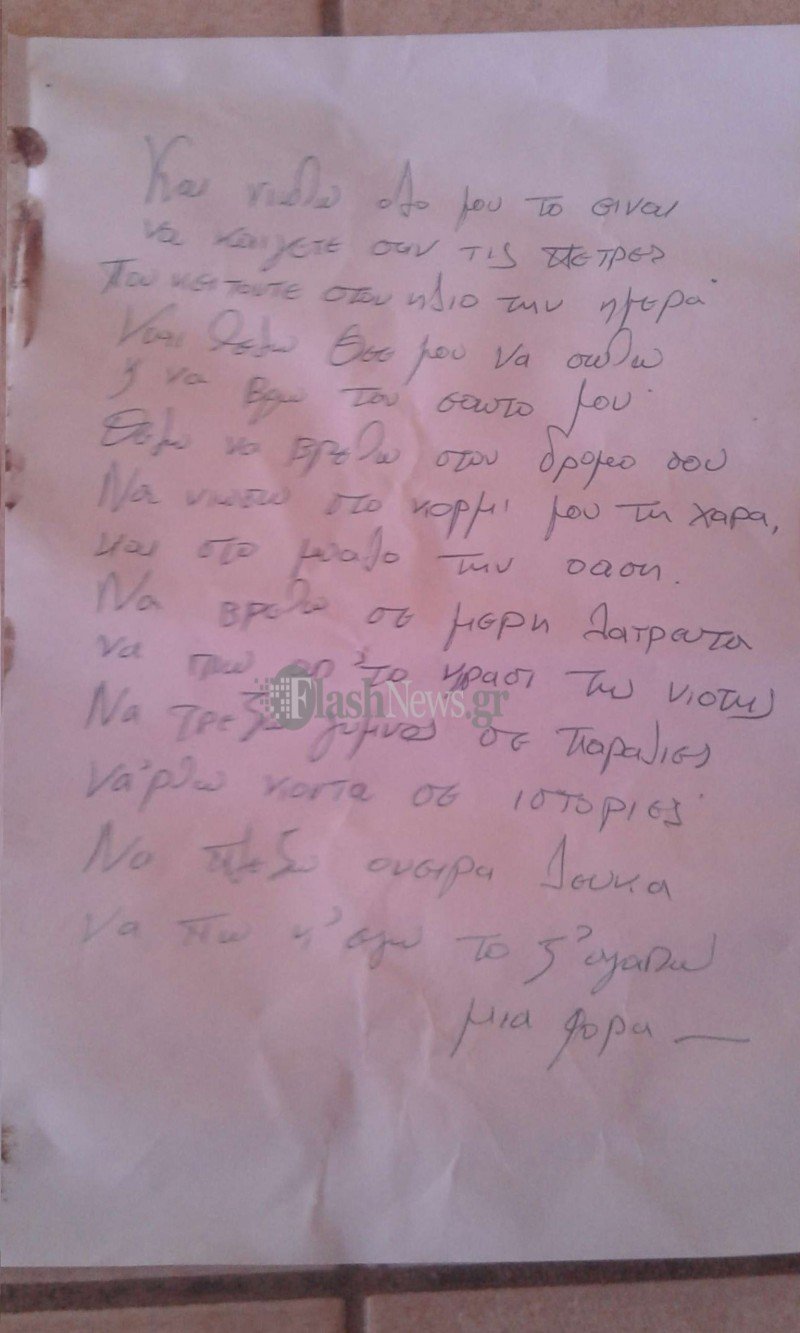 Και νιωθω ολο μου το ειναι
να καιγετε σαν τις πετρες
που κειτοντε στον ηλιο την ημερα
Και θελω Θεε μου να σωθω
η να βρω τον εαυτο μου
Θελω να βρεθω στον δρομο σου
Να νιωσω στο κορμι μου τη χαρα,
και στο μυαλο την οαση.
Να βρεθω σε μερη λατρευτα
να πιω απ' το κρασι της νιοτης
FlashNews.gr
Να τρεξω γυμνος σε παραλιες
να'ρθω κοντα σε ιστοριες
Να πλεξω ονειρα λευκα
να πω κ' εγω το σ'αγαπω
μια φορα —